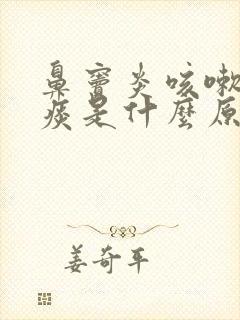 鼻窦炎咳嗽
痰是什麼原
姜奇平